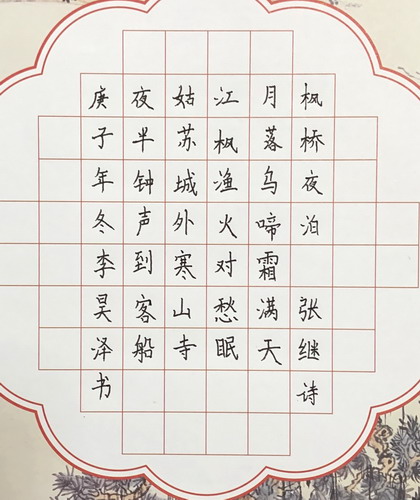 枫桥夜泊 张继诗
月落乌啼霜满天
江枫渔火对愁眠
姑苏城外寒山寺
夜半钟声到客船
庚子年冬李昊泽书